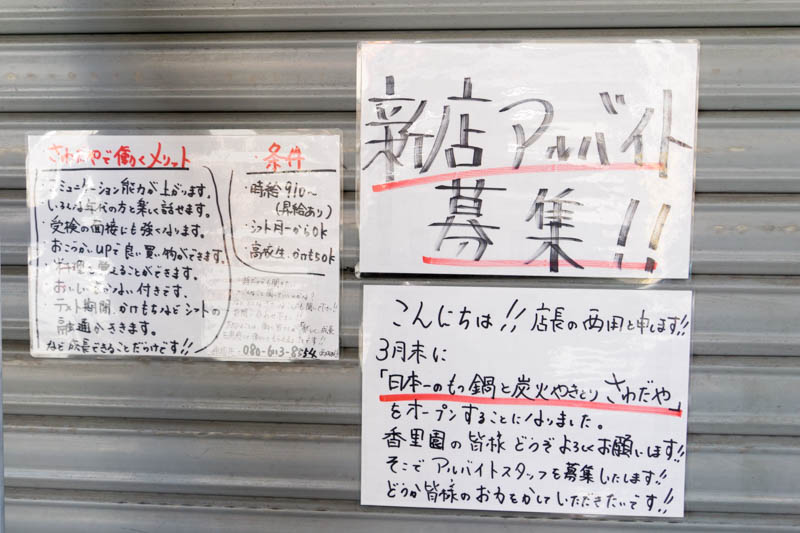 新店アルバイト
募集!!
さわだやで働くメリット
・コミュニケーション能力が上がります。
・いろんな年代の方と楽しく話せます。
・受検の面接にも強くなります。
・おこづかいUPで良い買い物ができます。
・料理を覚えることができます。
・おいしいまかない付きです。
・テスト期間、かけもちなどシフトの
融通がききます。
など成長できることだらけです!!
条件
・時給910〜
(昇給あり)
・シフト月一からOK
・高校生、かけもちOK
こんにちは!!店長の西田と申します!!
3月末に
「日本一のもつ鍋と炭火やきとり さわだや」
をオープンすることになりました。
香里園の皆様 どうぞよろしくお願いします!!
そこでアルバイトスタッフを募集いたします!!
どうか皆様のお力をかしていただきたいです!!